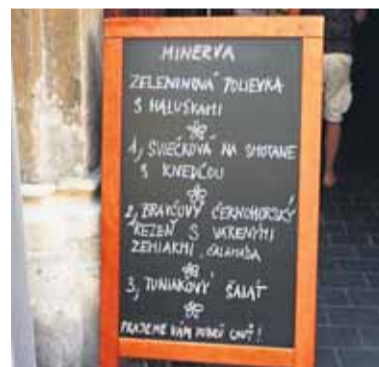 MINERVA
ZELENINOVÁ POLIEVKA
S HALUŠKAMI
1, SVIEČKOVÁ NA SMOTANE
S KNEDĽOU
2, BRAVČOVÝ ČERNOHORSKÝ
REZEŇ S VARENÝMI
ZEMIAKMI, ČALAMÁDA
3, TUNIAKOVÝ ŠALÁT
PRAJEME VÁM DOBRÚ CHUŤ!